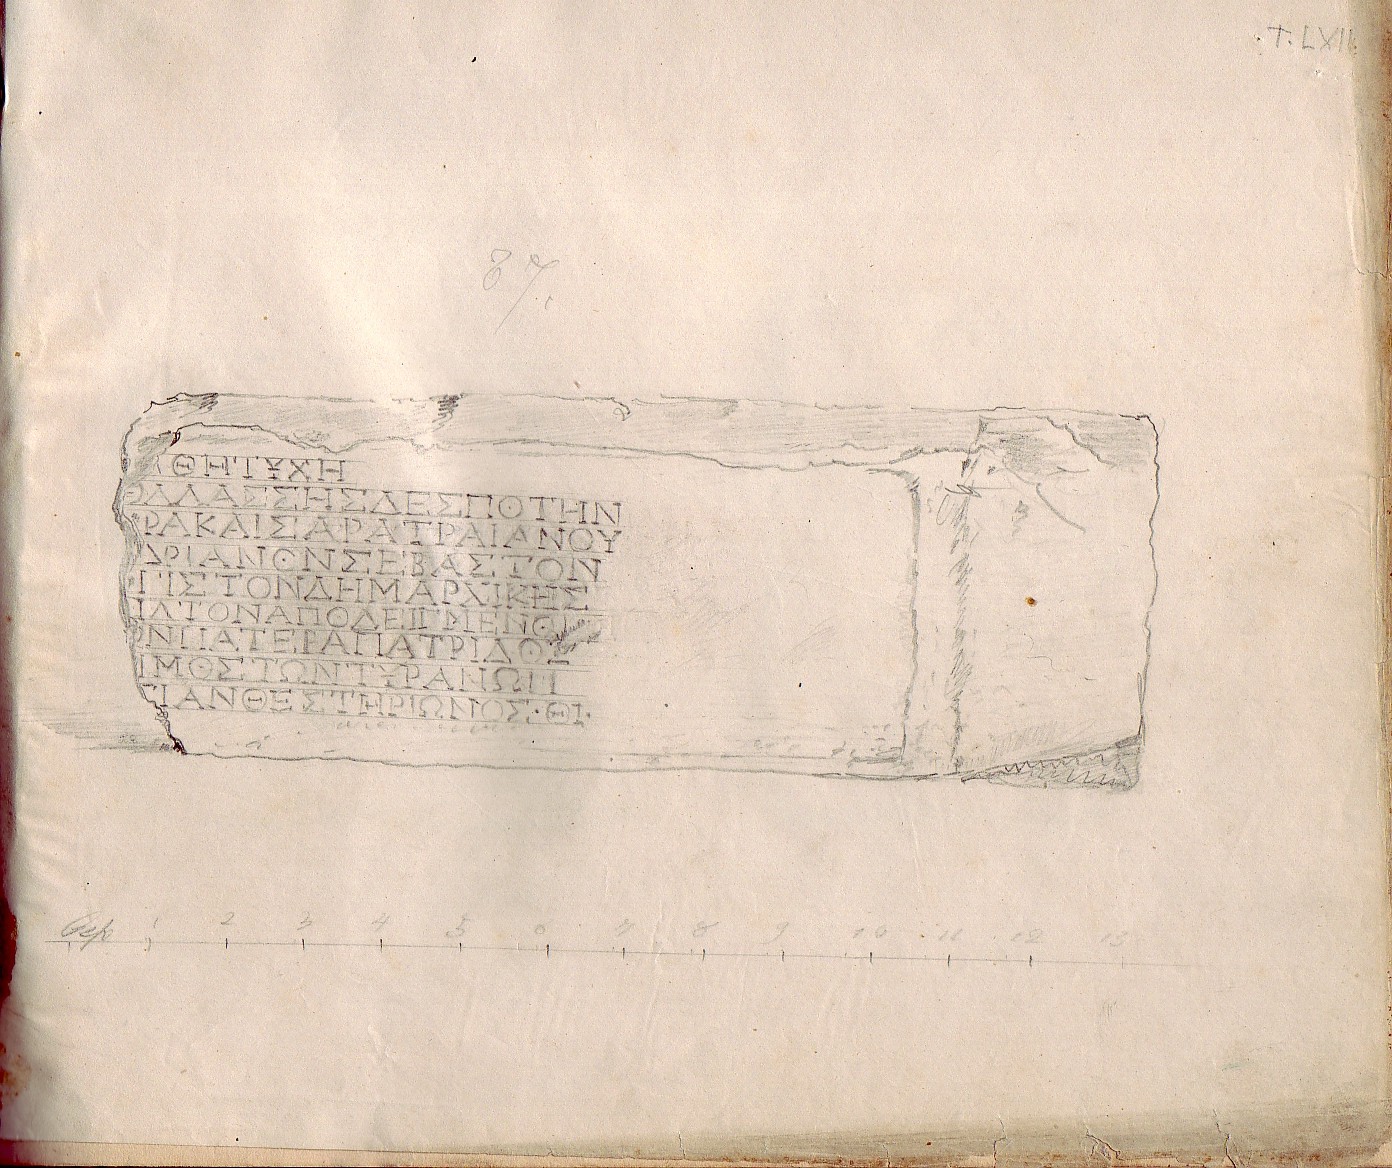 T. LXII
87.
ΘΗΤΥΧΗ
ΘΑΛΑΣΣΗΣΔΕΣΠΟΤΗΝ
ΡΑΚΑΙΣΑΡΑΤΡΑΙΑΝΟΥ
ΔΡΙΑΝΟΝΣΕΒΑΣΤΟΝ
ΓΙΣΤΟΝΔΗΜΑΡΧΙΚΗΣ
ΙΑΤΟΝΑΠΟΔΕΙΓΜΕΝΟ
ΩΝΠΑΤΕΡΑΠΑΤΡΙΔΟΣ
ΙΜΟΣΤΩΝΤΥΡΑΝΩΝ
ΓΙΑΝΘΕΣΤΗΡΙΩΝΟΣ·ΘΙ·
1 2 3 4 5 6 7 8 9 10 11 12 13